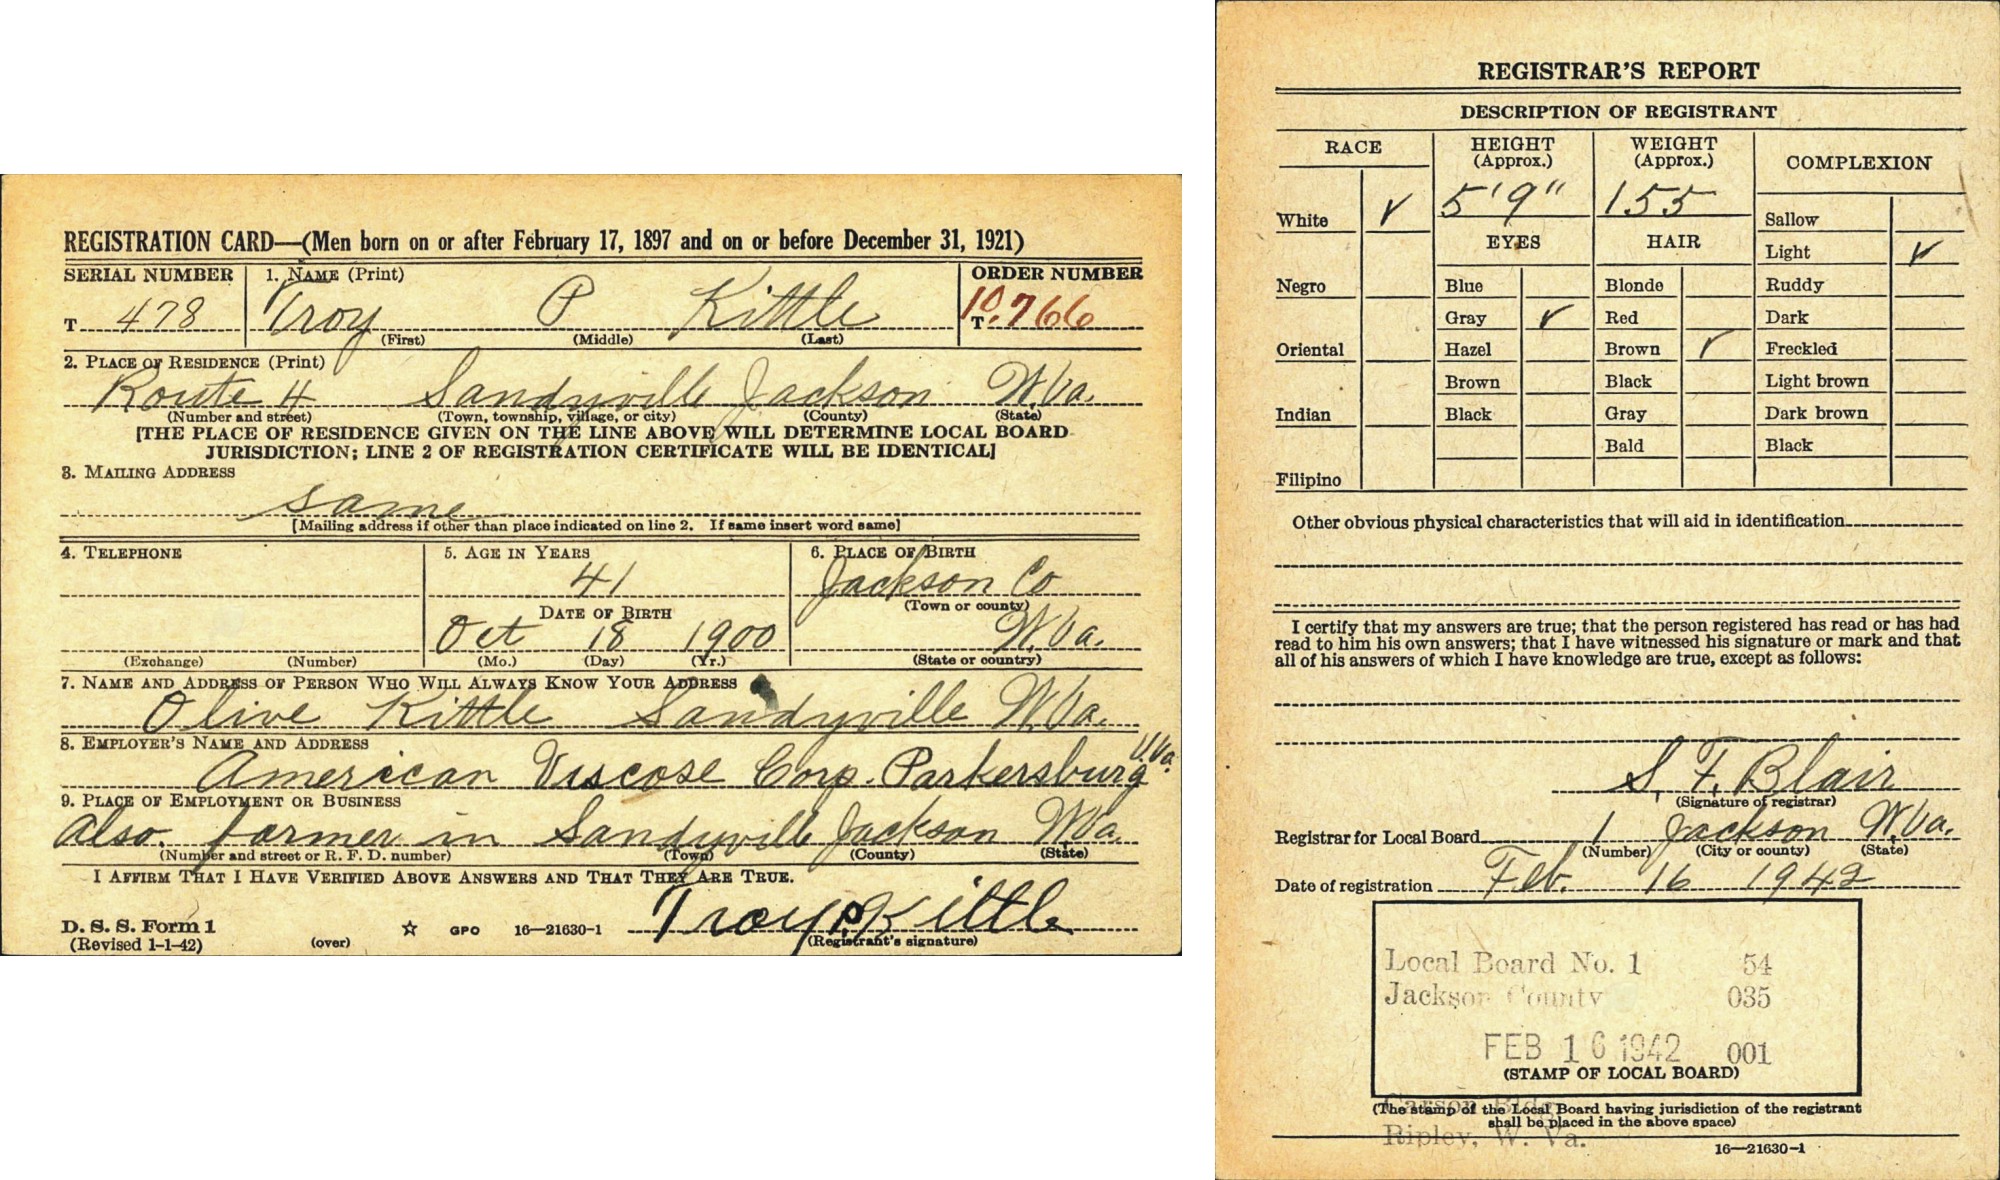 REGISTRATION CARD—(Men born on or after February 17, 1897 and on or before December 31, 1921)
SERIAL NUMBER 1. NAME (Print) ORDER NUMBER
T 478 Troy P Kittle T 10,766
(First) (Middle) (Last)
2. PLACE OF RESIDENCE (Print)
Route 4 Sandyville Jackson W.Va.
(Number and street) (Town, township, village, or city) (County) (State)
[THE PLACE OF RESIDENCE GIVEN ON THE LINE ABOVE WILL DETERMINE LOCAL BOARD
JURISDICTION; LINE 2 OF REGISTRATION CERTIFICATE WILL BE IDENTICAL]
3. MAILING ADDRESS
same
[Mailing address if other than place indicated on line 2. If same insert word same]
4. TELEPHONE 5. AGE IN YEARS 6. PLACE OF BIRTH
41 Jackson Co
DATE OF BIRTH (Town or county)
Oct 18 1900 W.Va.
(Exchange) (Number) (Mo.) (Day) (Yr.) (State or country)
7. NAME AND ADDRESS OF PERSON WHO WILL ALWAYS KNOW YOUR ADDRESS
Olive Kittle Sandyville W.Va.
8. EMPLOYER'S NAME AND ADDRESS
American Viscose Corp. Parkersburg W.Va.
9. PLACE OF EMPLOYMENT OR BUSINESS
Also. farmer in Sandyville Jackson W.Va.
(Number and street or R. F. D. number) (Town) (County) (State)
I AFFIRM THAT I HAVE VERIFIED ABOVE ANSWERS AND THAT THEY ARE TRUE.
Troy P. Kittle
D. S. S. Form 1 GPO 16—21630-1
(Revised 1-1-42) (over) (Registrant's signature)
REGISTRAR'S REPORT
DESCRIPTION OF REGISTRANT
RACE HEIGHT (Approx.) WEIGHT (Approx.) COMPLEXION
White ✓ 5'9" 155 Sallow
EYES HAIR Light ✓
Negro Blue Blonde Ruddy
Gray ✓ Red Dark
Oriental Hazel Brown ✓ Freckled
Brown Black Light brown
Indian Black Gray Dark brown
Bald Black
Filipino
Other obvious physical characteristics that will aid in identification
I certify that my answers are true; that the person registered has read or has had
read to him his own answers; that I have witnessed his signature or mark and that
all of his answers of which I have knowledge are true, except as follows:
S. F. Blair
(Signature of registrar)
Registrar for Local Board 1 Jackson W.Va.
(Number) (City or county) (State)
Date of registration Feb. 16 1942
Local Board No. 1 54
Jackson County 035
FEB 16 1942 001
(STAMP OF LOCAL BOARD)
Carson Bldg
(The stamp of the Local Board having jurisdiction of the registrant
shall be placed in the above space)
Ripley, W. Va.
16—21630-1